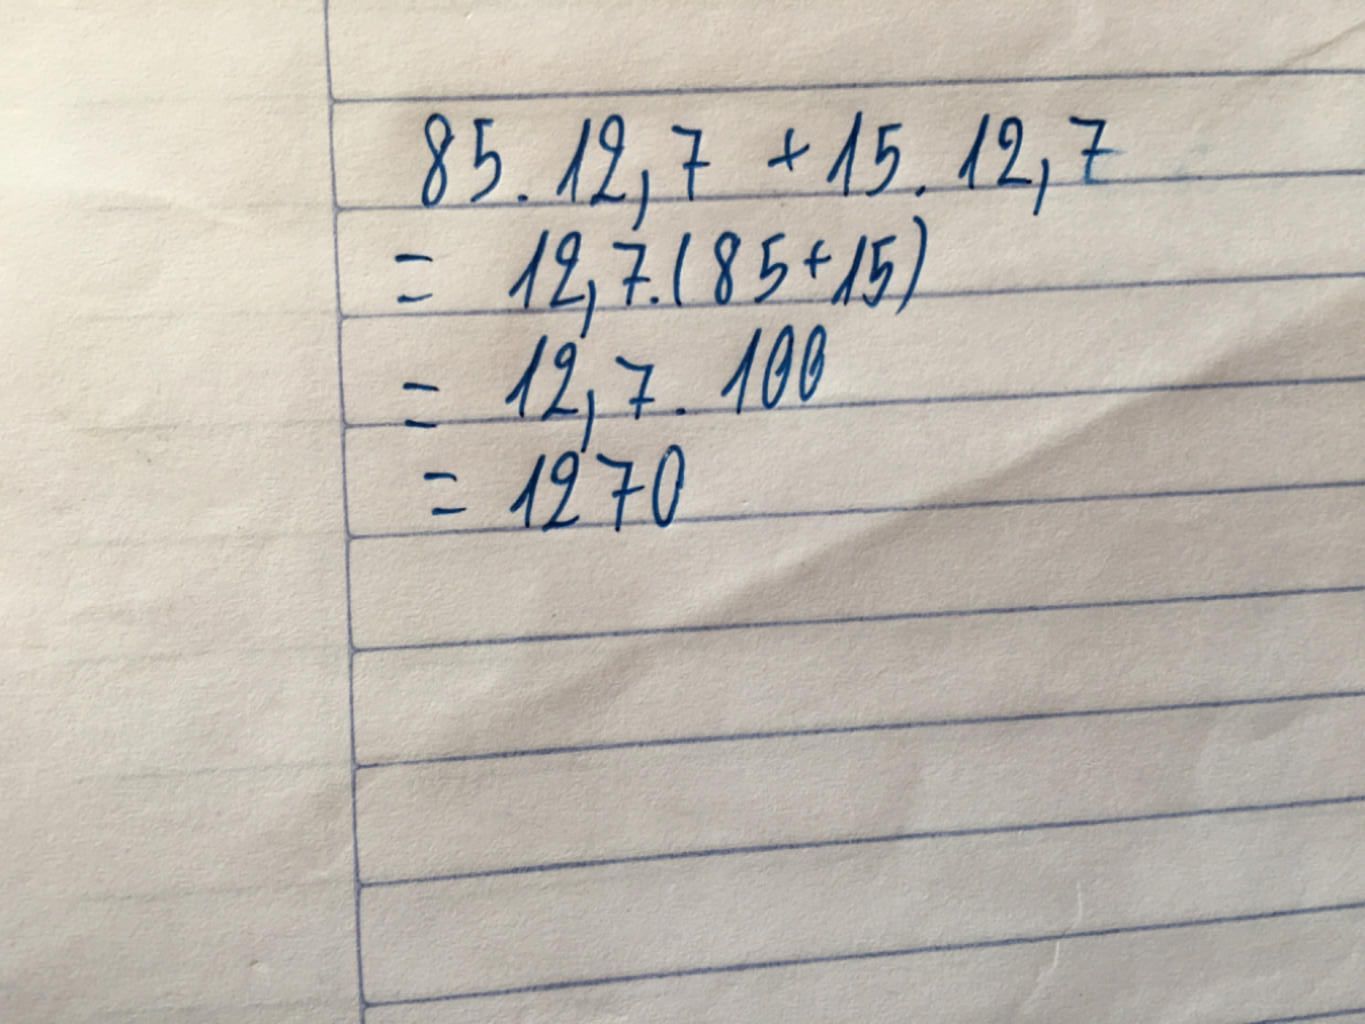 85.12,7 + 15.12,7
= 12,7.(85+15)
= 12,7.100
= 1270